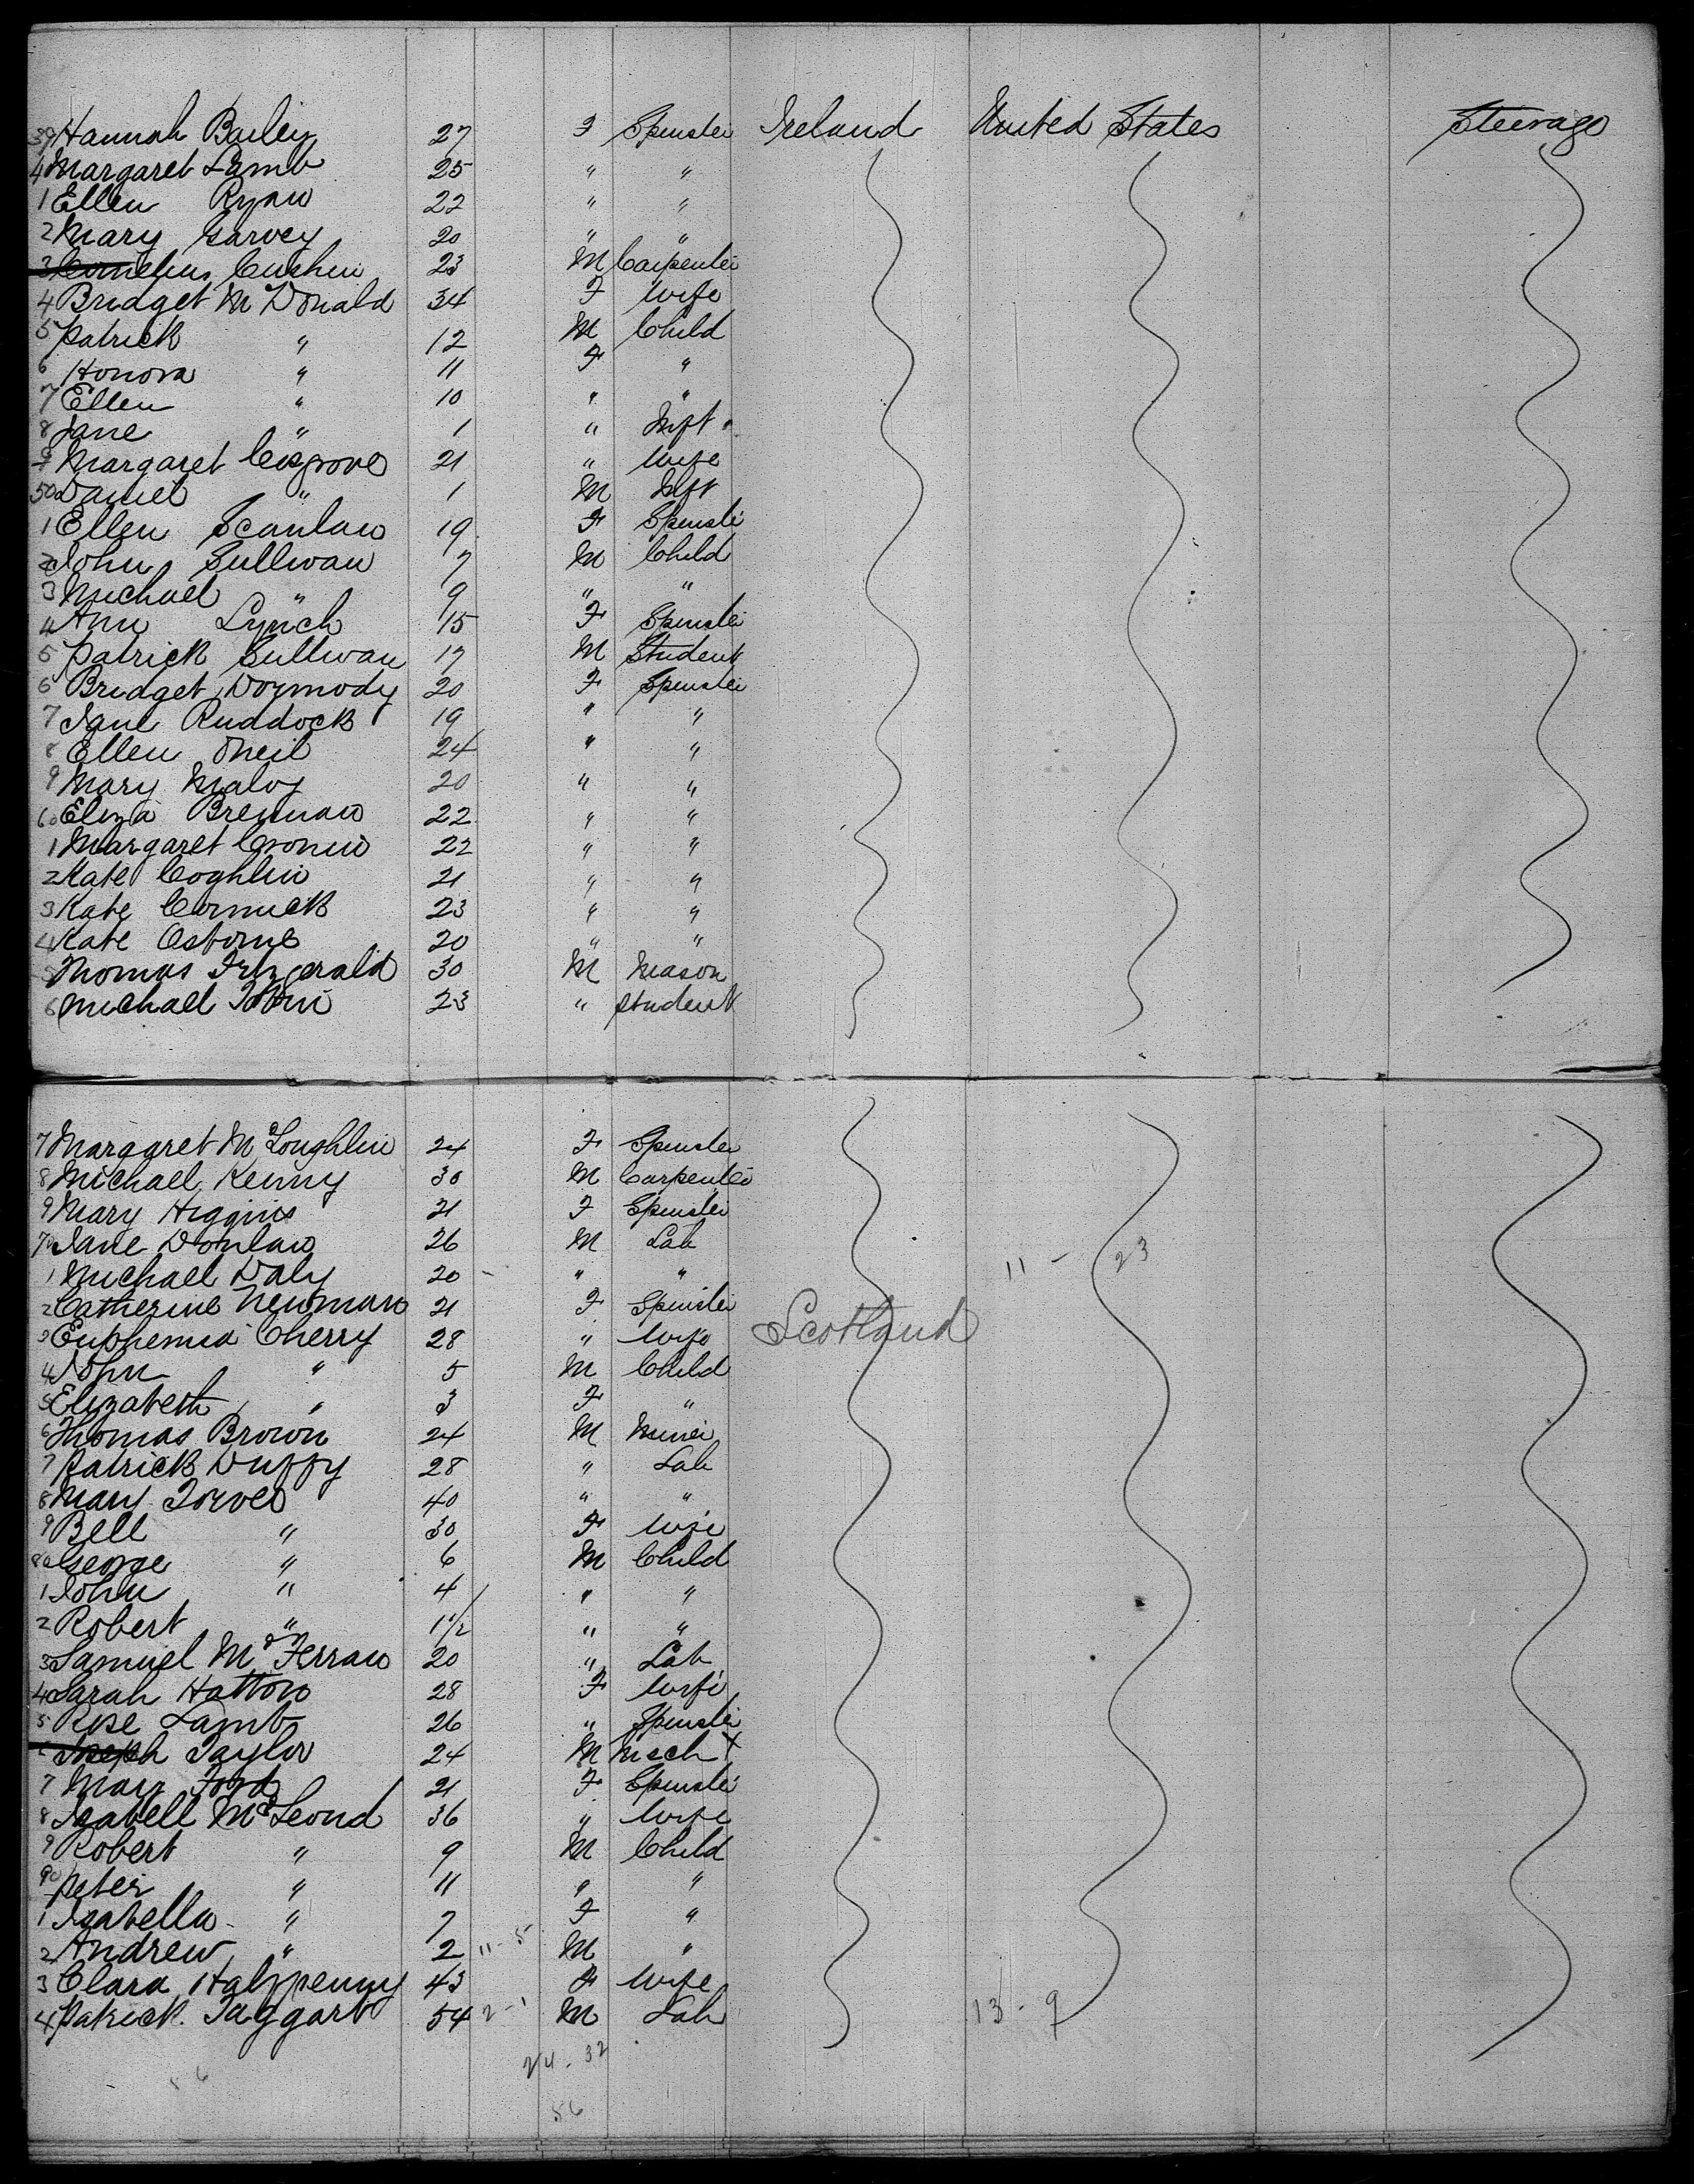 39 Hannah Bailey 27 F Spinster Ireland United States Steerage
4 Margaret Lamb 25 " "
1 Ellen Ryan 22 " "
2 Mary Garvey 20 " "
3 Cornelius Cushin 23 M Carpenter
4 Bridget McDonald 34 F Wife
5 Patrick " 12 M Child
6 Honora " 11 F "
7 Ellen " 10 " "
8 Jane " 1 " Inft
9 Margaret Cosgrove 21 " Wife
50 Daniel " 1 M Inft
1 Ellen Scanlan 19 F Spinster
2 John Sullivan 7 M Child
3 Michael " 9 " "
4 Ann Lynch 15 F Spinster
5 Patrick Sullivan 17 M Student
6 Bridget Dormody 20 F Spinster
7 Jane Ruddock 19 " "
8 Ellen ONeil 24 " "
9 Mary Maloy 20 " "
60 Eliza Brennan 22 " "
1 Margaret Cronin 22 " "
2 Kate Coghlin 21 " "
3 Kate Cormick 23 " "
4 Kate Osborne 20 " "
5 Thomas Fitzgerald 30 M Mason
6 Michael Tobin 23 " Student
7 Margaret McLoughlin 24 F Spinster
8 Michael Kenny 30 M Carpenter
9 Mary Higgins 21 F Spinster
70 Jane Donlan 26 M Lab
1 Michael Daly 20 " " 11 - 23
2 Catherine Newman 21 F Spinster
3 Euphemia Cherry 28 " Wife Scotland
4 John " 5 M Child
5 Elizabeth " 3 F "
6 Thomas Brown 24 M Miner
7 Patrick Duffy 28 " Lab
8 Mary 40 " "
9 Bell " 30 F Wife
80 George " 6 M Child
1 John " 4 " "
2 Robert " 1 1/2 " "
3 Samuel McFerran 20 " Lab
4 Sarah Hatton 28 F Wife
5 Rose Lamb 26 " Spinster
6 Joseph Taylor 24 M Mech X
7 Mary Ford 21 F Spinster
8 Isabell McLeond 36 " Wife
9 Robert " 9 M Child
90 Peter " 11 " "
1 Isabella " 7 F "
2 Andrew " 2 11-5 M "
3 Clara Halfpenny 43 F Wife
4 Patrick Taggart 54 2-1 M Lab 13 - 9
24 - 32
56